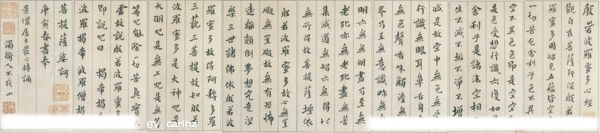 般若波羅蜜多心經
觀自在菩薩行深般若
波羅蜜多時照見五蘊皆空度
一切苦厄舍利子色不異
空空不異色色即是空空即
是色受想行識亦復如是
舍利子是諸法空相不生
不滅不垢不淨不增不
減是故空中無色無受想
行識無眼耳鼻舌身意
無色聲香味觸法無眼界
乃至無意識界無無
明亦無無明盡乃至無
老死亦無老死盡無苦
集滅道無智亦無得以
無所得故菩提薩埵依
般若波羅蜜多故心無罣
礙無罣礙故無有恐怖
遠離顛倒夢想究竟涅
槃三世諸佛依般若波
羅蜜多故得阿耨多羅
三藐三菩提故知般若
波羅蜜多是大神咒是
大明咒是無上咒是無等
等咒能除一切苦真實不
虛故說般若波羅蜜多咒
即說咒曰 揭帝揭帝
波羅揭帝 波羅僧揭帝
菩提薩婆訶
庚寅春書奉
居士發心持誦
BY